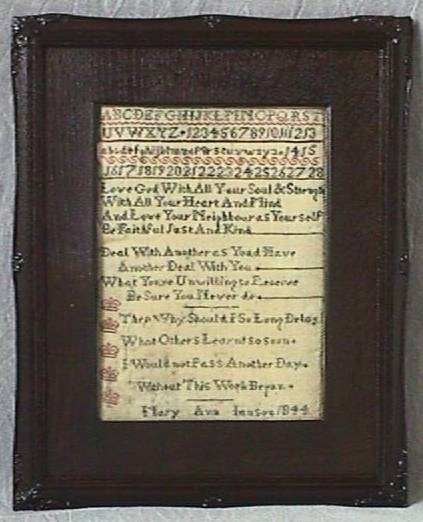 ABCDEFGHIJKLMNOPQRST
UVWXYZ 12345678910111213
abcdefghijklmnopqrstuvwxyz 1415
16171819202122232425262728
Love God With All Your Soul & Strength
With All Your Heart And Mind
And Love Your Neighbour as Yourself
Be Faithful Just And Kind
Deal With Another as Youd Have
Another Deal With You
What Youre Unwilling to Receive
Be Sure You Never do
Then Why Should I So Long Delay
What Others Learnt so soon
I Would not Pass Another Day
Without This Work Began
Mary Ann 1844